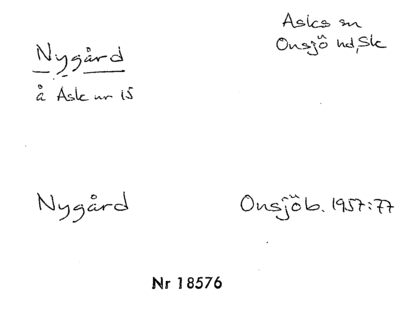 Nygård
å Ask nr 15
Asks sn
Onsjö hd, Sk
Nygård
Onsjöb. 1957:77
Nr 18576